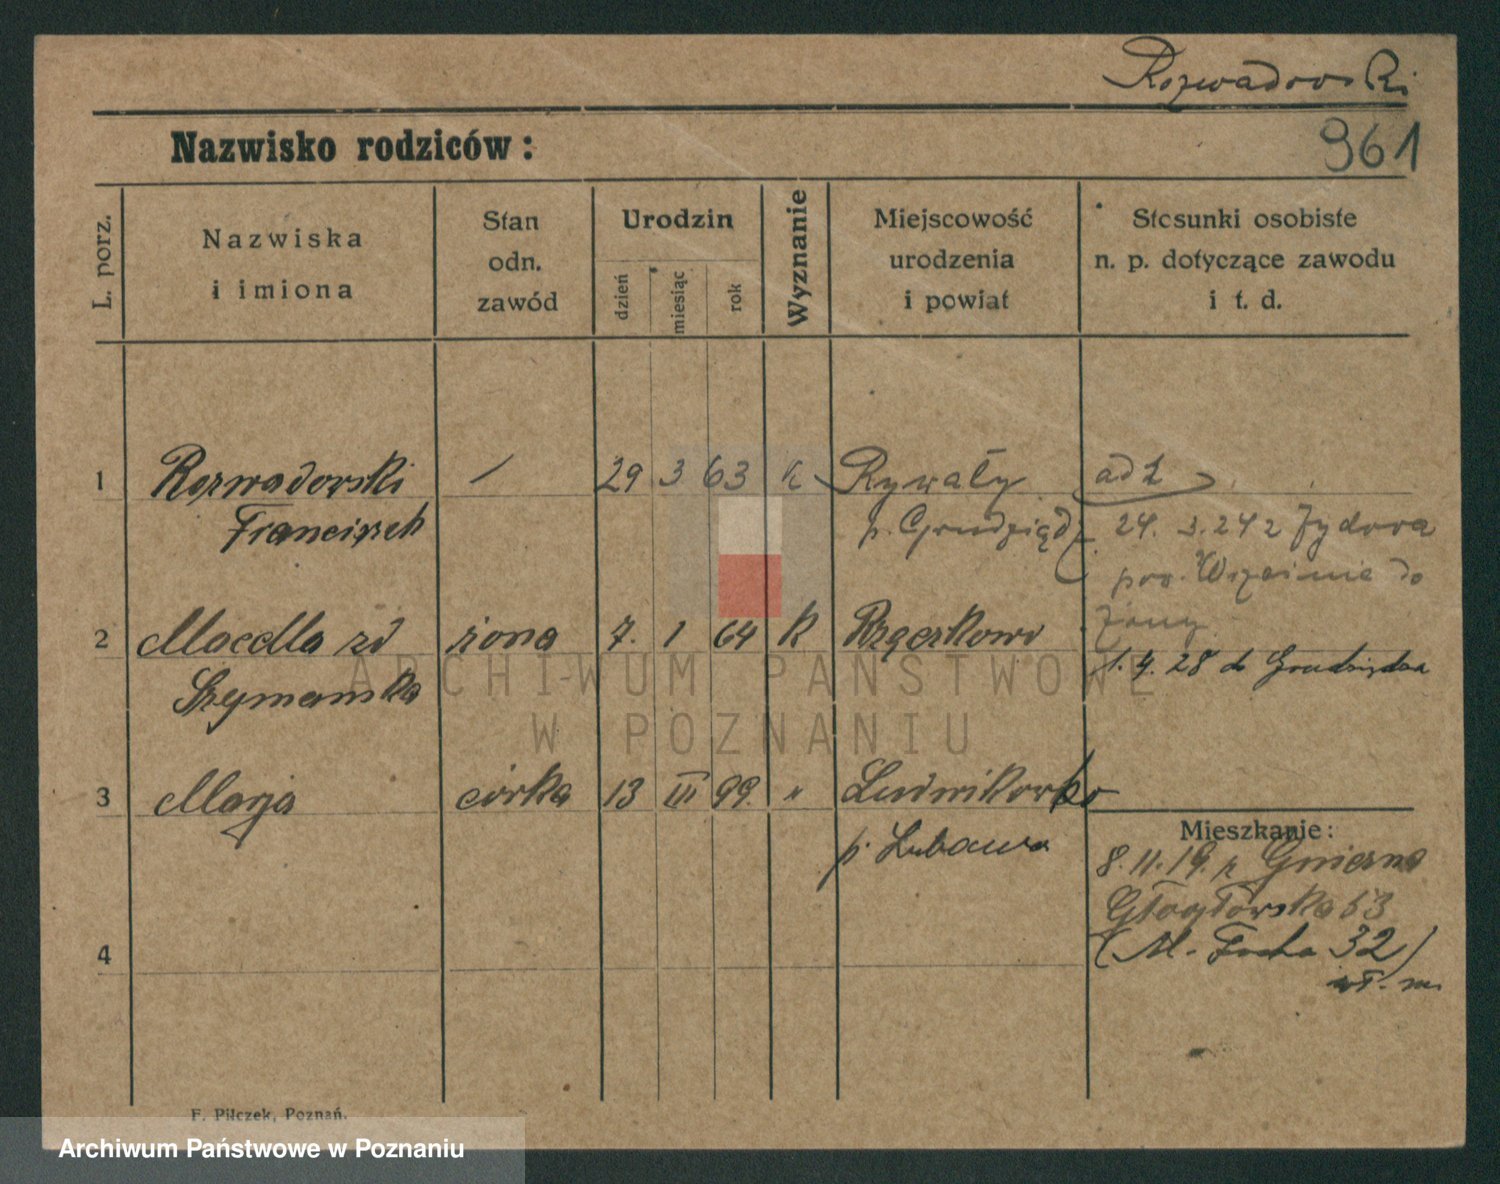 Rozwadowski
Nazwisko rodziców:
961
L. porz.
Nazwiska
i imiona
Stan
odn.
zawód
Urodzin
dzień
miesiąc
rok
Wyznanie
Miejscowość
urodzenia
i powiat
Stosunki osobiste
n. p. dotyczące zawodu
i t. d.
1 Rozwadowski / 29 3 63 K Rywałdy ad 1
Franciszek p. Grudziądz
24. 3. 24 z Żydowa
pow. Września do
żony
2 żona 7. 1 64 K
Szymańska
1. 4. 28 do Grudziądza
3 Marja córka 13 III 99. " Ludwikowko
p. Lubawa
Mieszkanie:
8. 11. 19. z Gniezna
Głogowska 53
4 (M. Focha 32)
F. Pilczek, Poznań.
ARCHIWUM PAŃSTWOWE
W POZNANIU
Archiwum Państwowe w Poznaniu